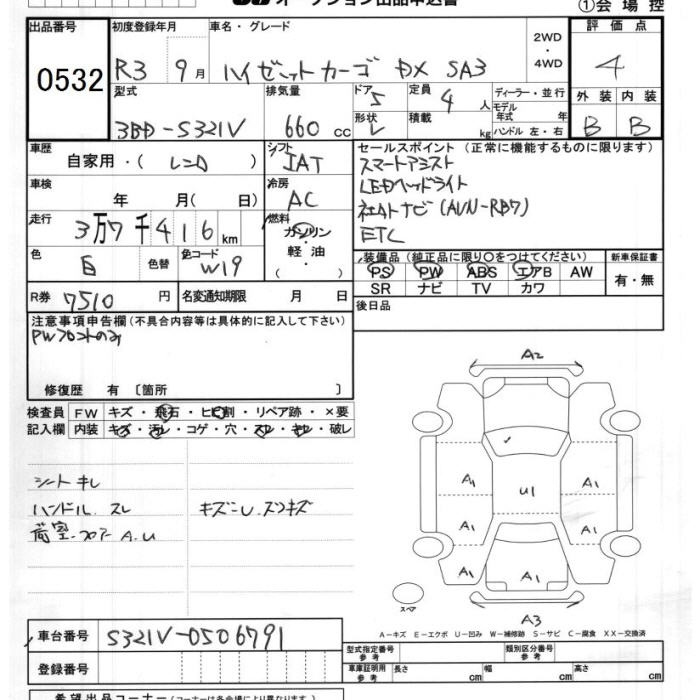 オークション出品申込書
①会場控
出品番号 初度登録年月 車名・グレード 2WD・4WD 評価点
0532 R3 9月 ハイゼットカーゴ DX SA3 4
型式 排気量 ドア 5 定員 4人 ディーラー・並行 外装 内装
3BD-S321V 660cc 形状 V 積載 kg モデル年式 年 ハンドル 左・右 B B
車歴 自家用・(レンタ) シフト IAT セールスポイント (正常に機能するものに限ります)
スマートアシスト
車検 年 月(日) 冷房 AC LEDヘッドライト
社外ナビ(AVN-RB7)
走行 3万7千416km 燃料 ガソリン・軽油・( ) ETC
色 白 色替 色コード W19 装備品(純正品に限り○をつけてください) 新車保証書
PS PW ABS エアB AW 有・無
SR ナビ TV カワ
R券 7510円 名変通知期限 月 日 後日品
注意事項申告欄(不具合内容等は具体的に記入して下さい)
PWフロントのみ
修復歴 有 〔箇所 〕
検査員 FW キズ・飛石・ヒビ割・リペア跡・×要
記入欄 内装 キズ・汚レ・コゲ・穴・スレ・キレ・破レ
シート キレ
ハンドル スレ キズ凹
荷室・フロアー A.U
A2
A1 U1 A1
A1 A1
A1 A1 A1
スペア
A3
A-キズ E-エクボ U-凹み W-補修跡 S-サビ C-腐食 XX-交換済
車台番号 S321V-0506791 型式指定番号 類別区分番号
登録番号 車庫証明用参考 長さ cm 幅 cm 高さ cm
希望出品コーナー(コーナーは各会場により異なります)